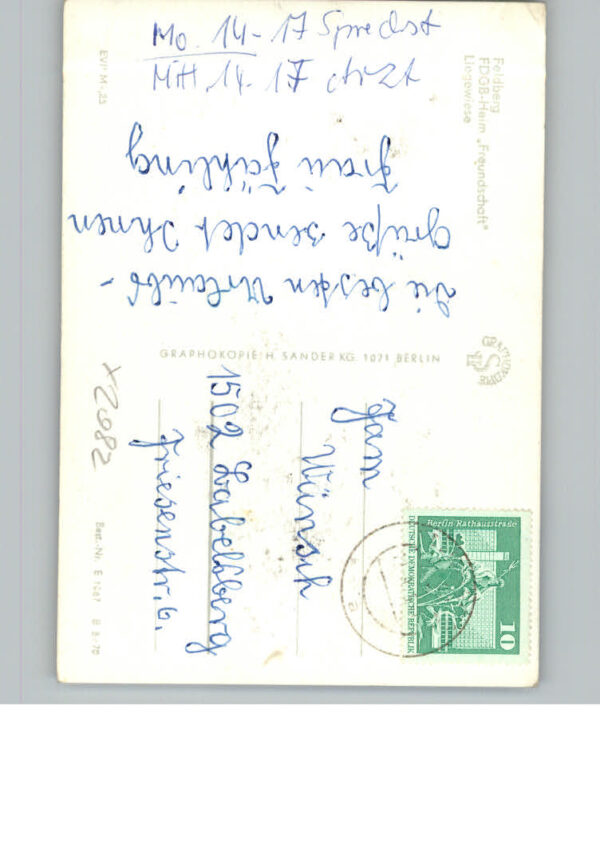 Mo. 14-17 Sprechst
Mitt. 14-17 Arzt
Feldberg
FDGB-Heim „Freundschaft“
Liegewiese
EVP M -,25
Die besten Urlaubs-
grüße sendet Ihnen
Frau Fähling
GRAPHOKOPIE H. SANDER KG. 1071 BERLIN
GRAPHOKOPIE
Fam
Wünsch
1502 Babelsberg
Friesenstr. 6.
x2682
Berlin Rathausstraße
DEUTSCHE DEMOKRATISCHE REPUBLIK
10
Best.-Nr. E